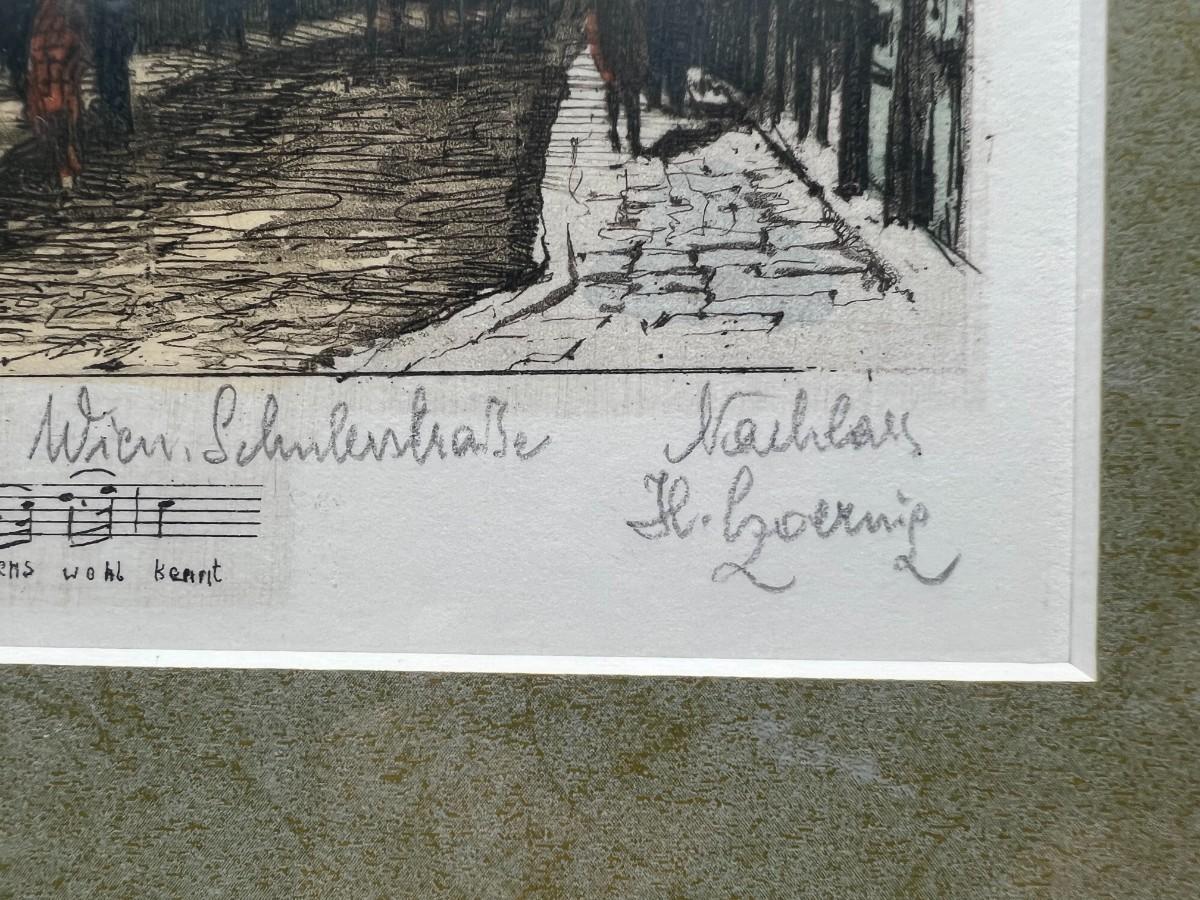 Wien. Schulerstraße
Nachlass
H. Czoernig
ens wohl kennt